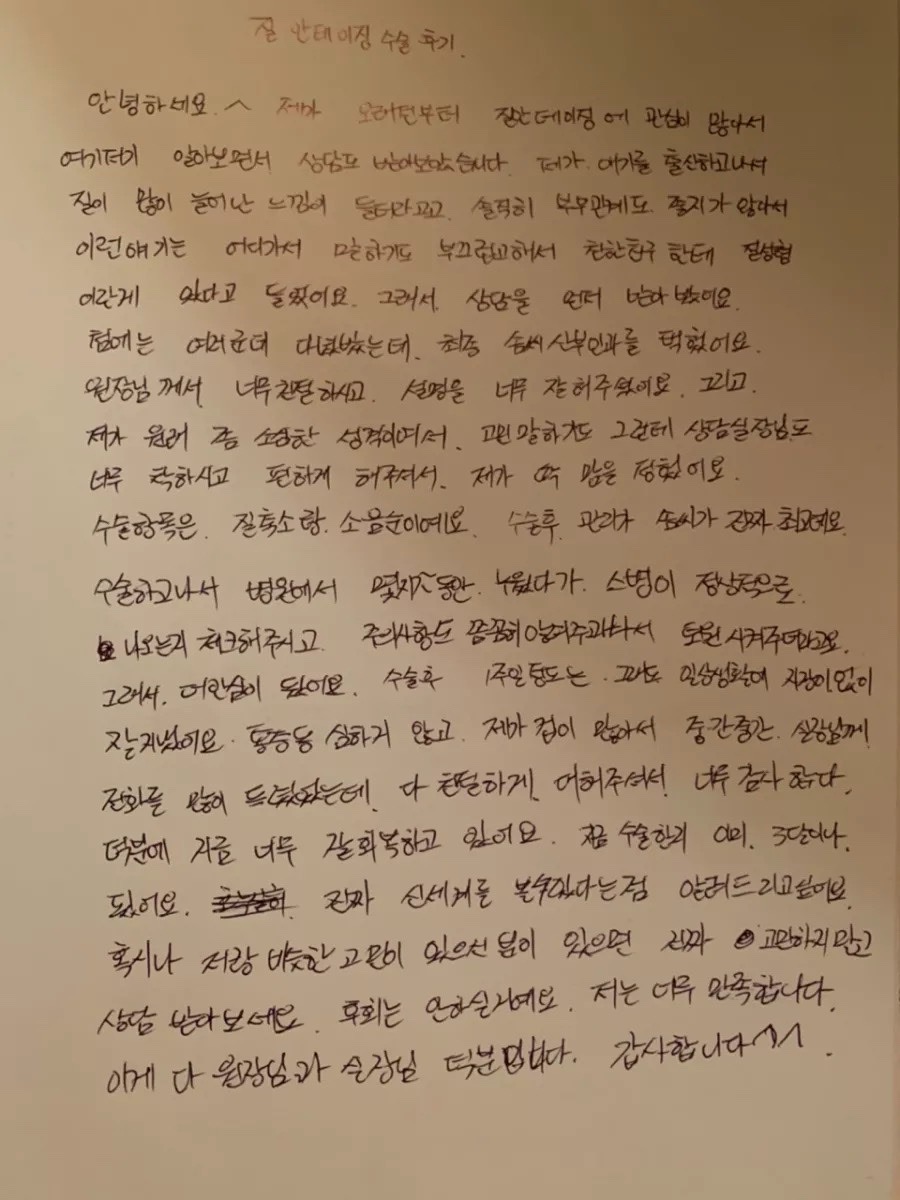 질 안테이징 수술 후기.
안녕하세요. ^ 제가 오래전부터 질안테이징에 관심이 많아서
여기저기 알아보면서 상담도 받아보았습니다. 제가 애기를 출산하고나서
질이 많이 늘어난 느낌이 들더라고요. 솔직히 부부관계도 좋지가 않아서
이런얘기는 어디가서 말하기도 부끄럽고해서 친한친구한테 질성형
이란게 있다고 들었어요. 그래서. 상담을 먼저 받아봤어요.
첨에는 여러군데 다녀봤는데. 최종 솜씨산부인과를 택했어요.
원장님께서 너무친절하시고. 설명을 너무 잘해주셨어요. 그리고.
제가 원래 좀 소심한 성격이여서. 고민말하기도 그런데 상담실장님도
너무 착하시고 편하게 해주셔서. 제가 딱 맘을 정했어요.
수술항목은. 질축소랑. 소음순이예요. 수술후. 관리가 솜씨가 진짜 최고예요.
수술하고나서 병원에서 몇시간동안. 누웠다가. 소변이 정상적으로.
나오는지 체크해주시고. 주의사항도 꼼꼼히 알려주고나서 퇴원시켜주더라고요.
그래서. 더안심이 됐어요. 수술후 1주일정도는. 그래도 일상생활에 지장이없이
잘지냈어요. 통증도 심하지 않고. 제가 겁이 많아서 중간중간. 실장님께.
전화를 많이 드렸었는데. 다 친절하게. 대해주셔서. 너무 감사합니다.
덕분에 지금 너무 잘회복하고 있어요. 지금 수술한지 이미. 3달이나.
됐어요. 진짜 신세계를 볼수있다는점 알려드리고싶어요.
혹시나 저랑 비슷한 고민이 있으신 분이 있으면 진짜 고민하지말고
상담 받아보세요. 후회는 안하실거예요. 저는 너무 만족합니다.
이게 다 원장님과 실장님 덕분입니다. 감사합니다^^.